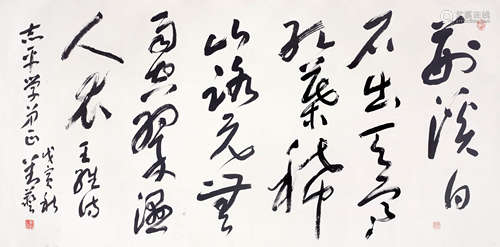 荆溪白
石出天寒
红叶稀
山路元无
雨空翠湿
人衣 王维诗
志平学弟正
戊寅秋